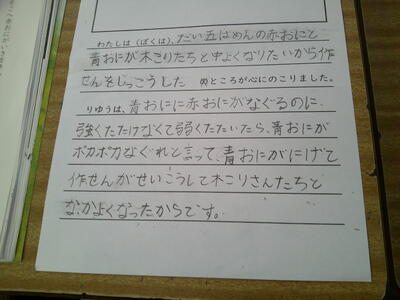 わたしは（ぼくは）、だい五ばめんの赤おにと
青おにが木こりたちと中よくなりたいから作
せんをじっこうした のところが心にのこりました。
りゆうは、青おにに赤おにがなぐるのに、
強くたたけなくて弱くたたいたら、青おにが
ポカポカなぐれと言って、青おにがにげて
作せんがせいこうして木こりさんたちと
なかがよくなったからです。